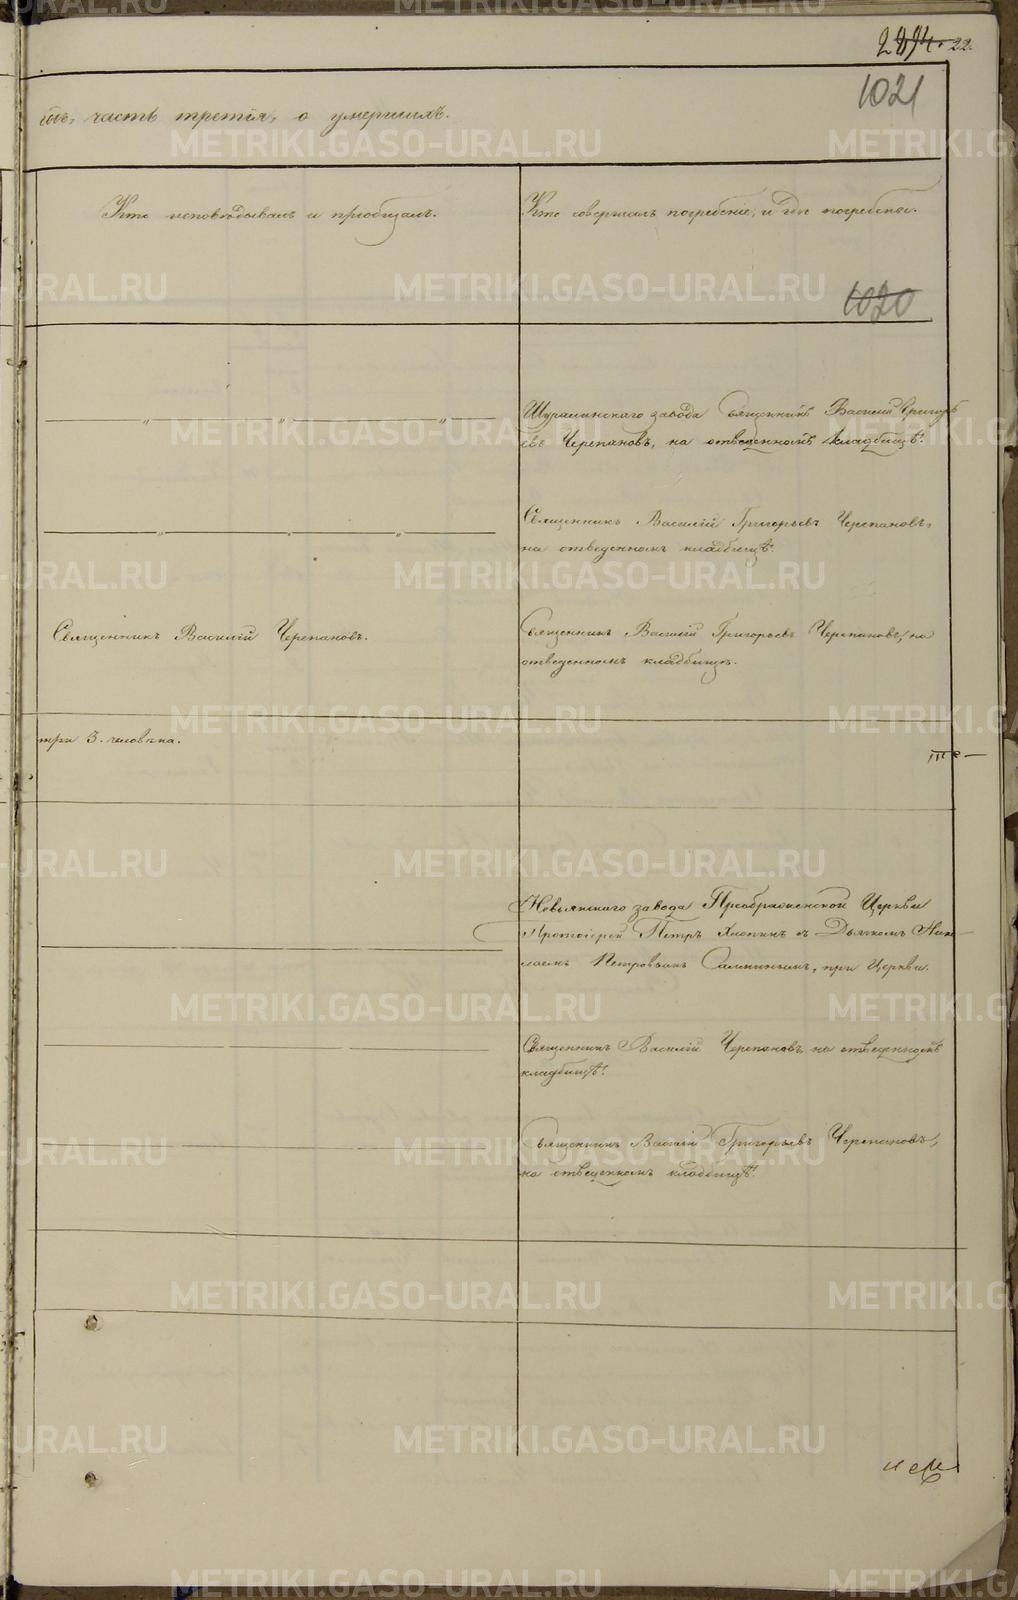 22.
1021
годъ, часть третія, о умершихъ.
Кто исповѣдывалъ и пріобщалъ.
Кто совершалъ погребеніе, и гдѣ погребены.
1020
Шуралинскаго завода Священникъ Василій Григорь
евъ Черепановъ, на отведенномъ кладбищѣ.
Священникъ Василій Григорьевъ Черепановъ,
на отведенномъ кладбищѣ.
Священникъ Василій Черепановъ.
Священникъ Василій Григорьевъ Черепановъ, на
отведенномъ кладбищѣ.
три 3. человѣка.
Невьянскаго завода Преображенской Церкви
Протоіерей Петръ Хлопинъ съ Дьячкомъ Ник
лаемъ Петровымъ, при Церкви.
Священникъ Василій Черепановъ, на отведенномъ
кладбищѣ.
Священникъ Василій Григорьевъ Черепановъ,
на отведенномъ кладбищѣ.
METRIKI.GASO-URAL.RU